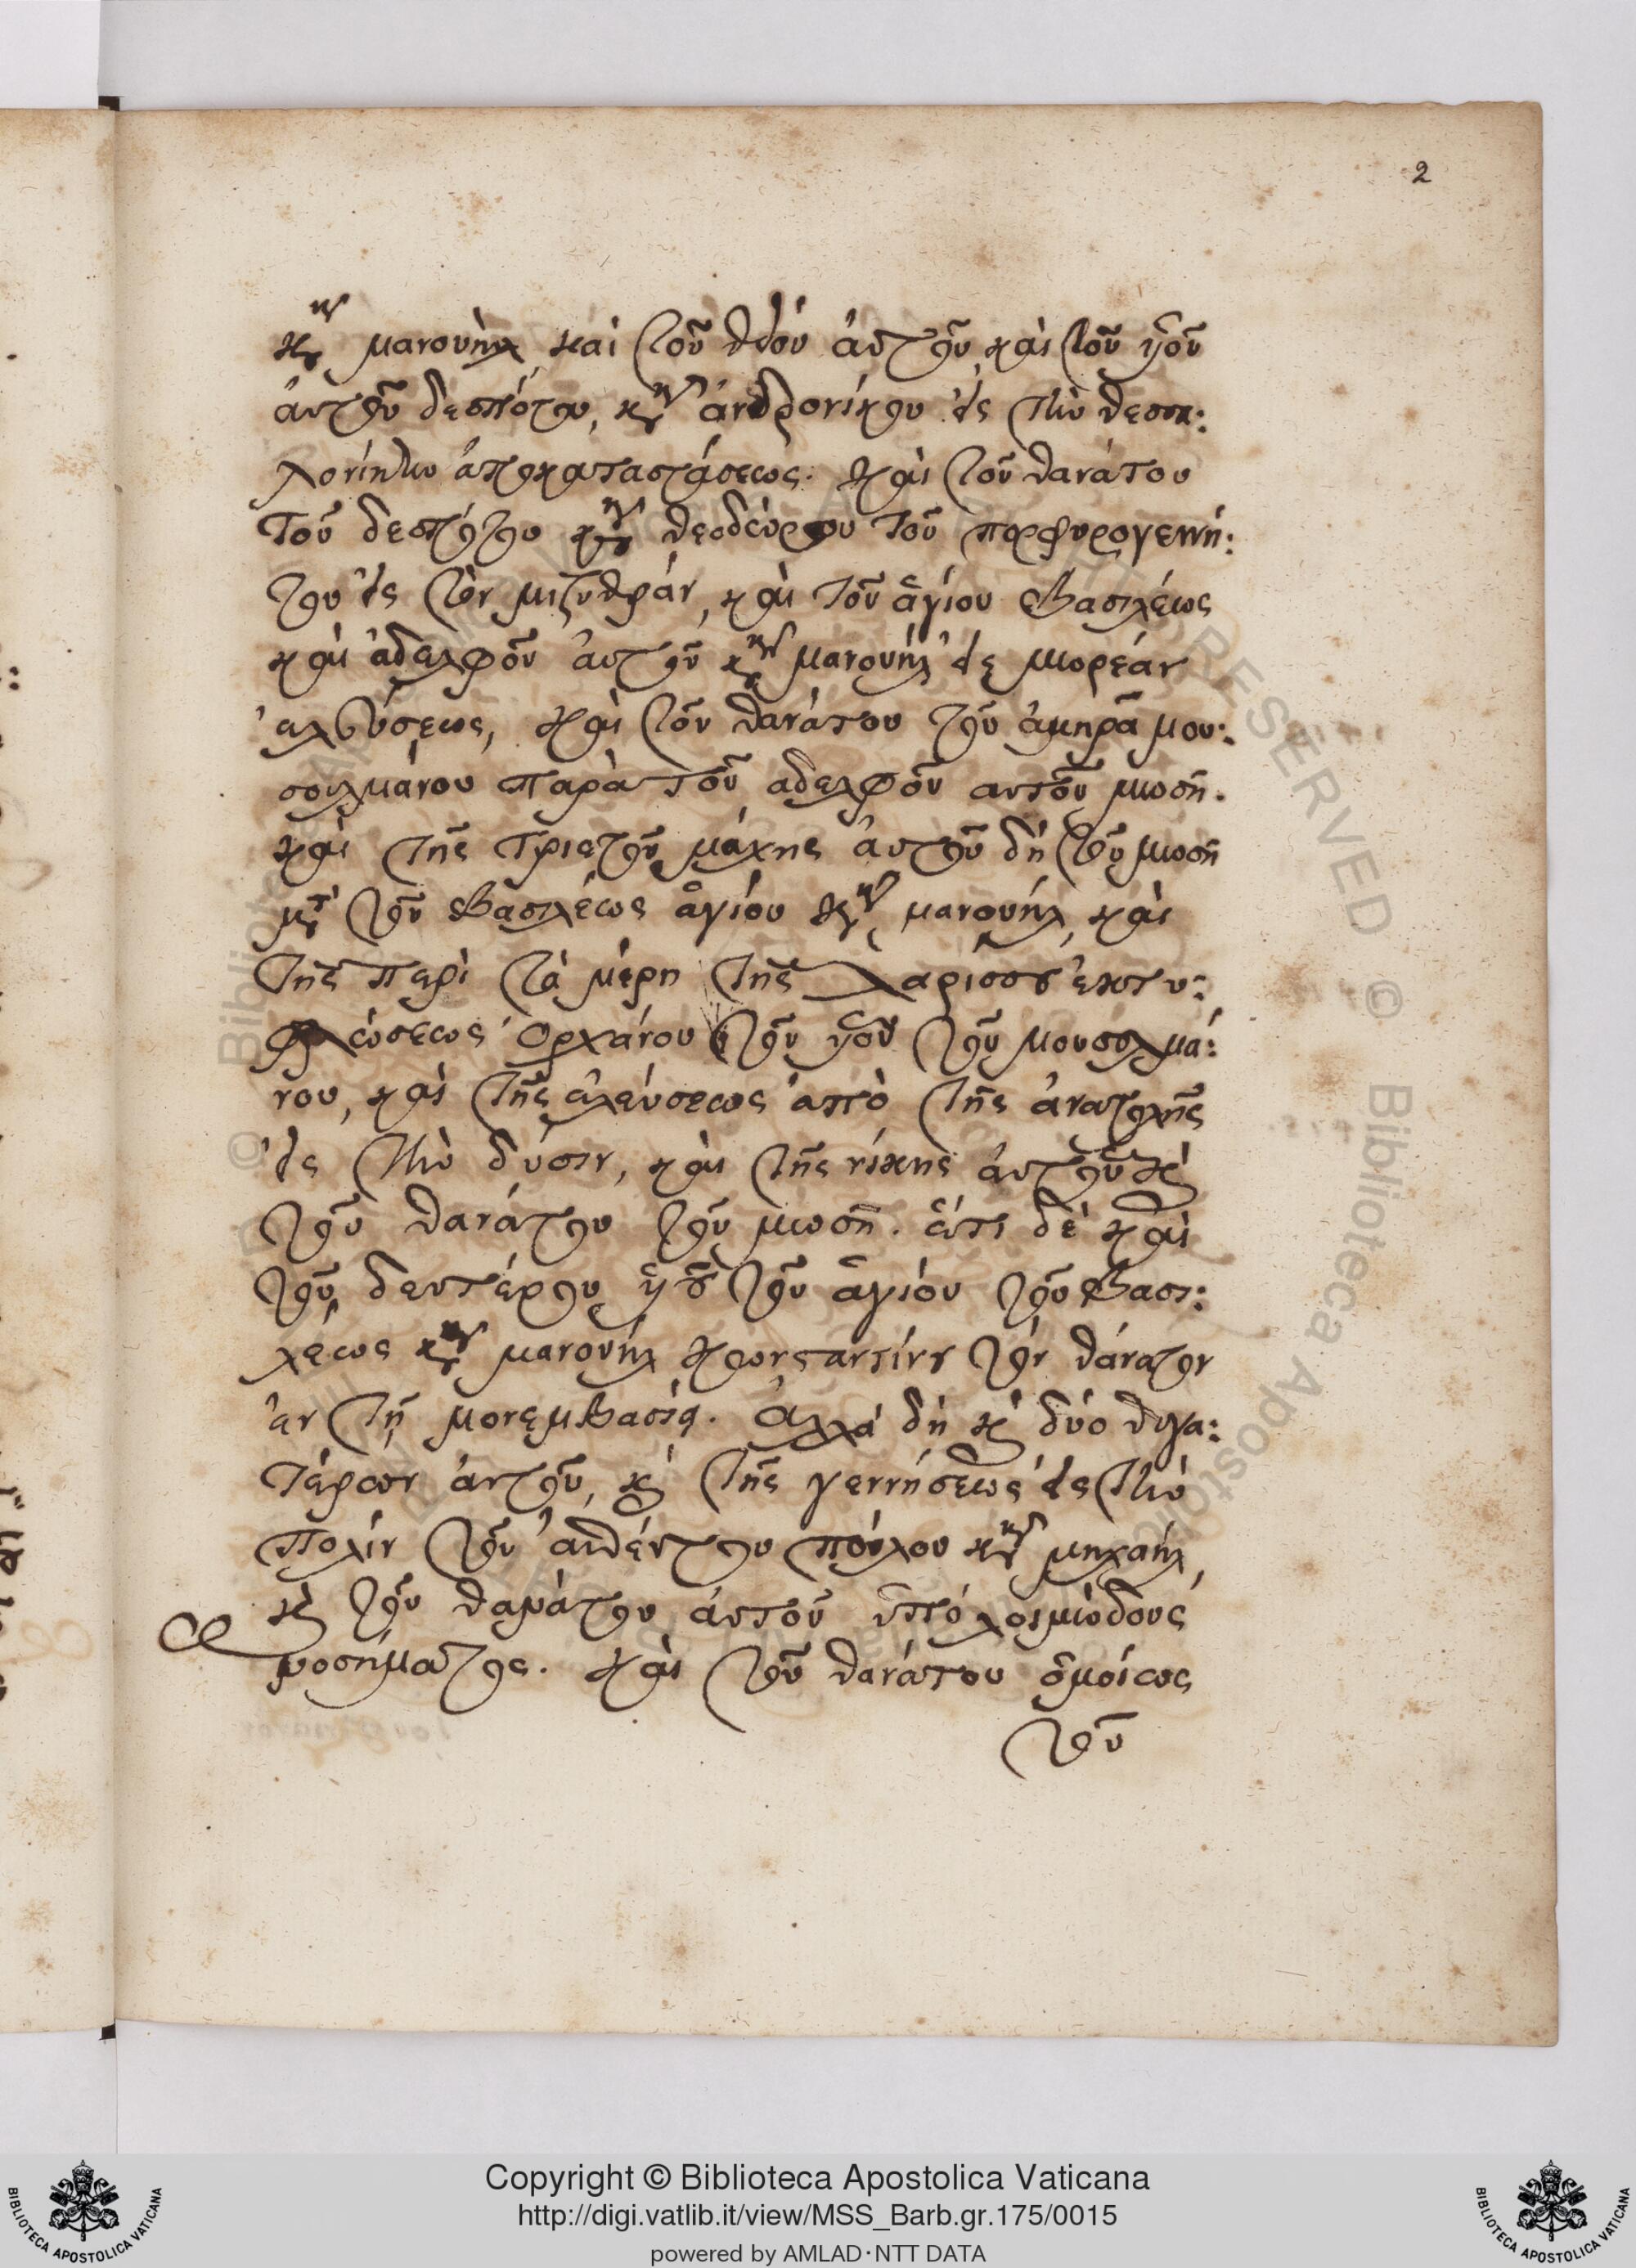 2
κυρ μανουὴλ καὶ τοῦ θείου ἀυτοῦ, καὶ τοῦ υἱοῦ
ἀυτοῦ δεσπότου, κυρ ἀνδρονίκου ἐις τὴν θεσσα:
λονίκην ἀποκαταστάσεως. καὶ τοῦ θανάτου
τοῦ δεσπότου κυρ θεοδώρου τοῦ πορφυρογεννή:
του ἐις τὸν μιζυθράν, καὶ τοῦ ἁγίου βασιλέως
καὶ ἀδελφοῦ ἀυτοῦ κυρ μανουὴλ ἐις μορέαν
ἐλεύσεως, καὶ τοῦ θανάτου τοῦ ἀμηρᾶ μου:
σουλμάνου παρὰ τοῦ ἀδελφοῦ αυτοῦ μωσῆ.
καὶ τῆς τριετοῦς μάχης ἀυτοῦ δὴ τοῦ μωσῆ
μετὰ τοῦ βασιλέως ἁγίου κυρ μανουὴλ, καὶ
τῆς περὶ τὰ μέρη τῆς λαρίσσου ἐκτυ:
φλώσεως ὀρχάνου τοῦ υἱοῦ τοῦ μουσουλμά:
νου, καὶ τῆς ἐλεύσεως ἀπὸ τῆς ἀνατολῆς
ἐις τὴν δύσιν, καὶ τῆς νίκης ἀυτοῦ καὶ
τοῦ θανάτου τοῦ μωσῆ. ἔτι δὲ καὶ
τοῦ δευτέρου υἱοῦ τοῦ ἁγίου τοῦ βασι:
λέως κυρ μανουὴλ κωνσταντίνου τὸν θάνατον
ἐν τῇ μονεμβασίᾳ. ἀλλὰ δὴ καὶ δύο θυγα:
τέρων ἀυτοῦ, καὶ τῆς γεννήσεως ἐις τὴν
πόλιν τοῦ ἀυθέντου πούλου κυρ μηχαὴλ,
καὶ τοῦ θανάτου ἀυτοῦ ὑπὸ λοιμώδους
νοσήματος. καὶ τοῦ θανάτου ὁμοίως
τοῦ
Copyright © Biblioteca Apostolica Vaticana
http://digi.vatlib.it/view/MSS_Barb.gr.175/0015
powered by AMLAD·NTT DATA